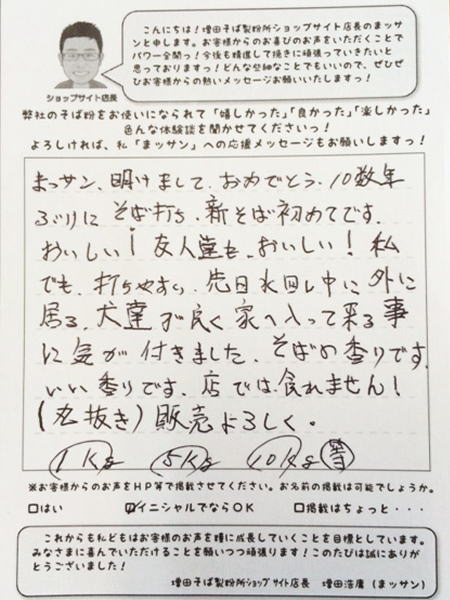 こんにちは！増田そば製粉所ショップサイト店長のマッサ
ンと申します。お客様からのお喜びのお声をいただくことで
パワー全開っ！今後も精進して挽きに頑張っていきたいと
思っておりますっ！どんな些細なことでもいいので、ぜひぜ
ひお客様からの熱いメッセージお願いいたしますっ！
ショップサイト店長
弊社のそば粉をお使いになられて「嬉しかった」「良かった」「楽しかった」
色んな体験談を聞かせてくださいっ！
よろしければ、私「まッサン」への応援メッセージもお願いしますっ！
まっサン、明けまして、おめでとう、10数年
ぶりに そば打ち、新そば初めてです、
おいしい！友人達も、おいしい！私
でも、打ちやすい、先日水回し中に 外に
居る、犬達が良く家へ入って来る事
に 気が 付きました、そばの香りです、
いい香りです、店では食れません！
(丸抜き) 販売よろしく。
1Kg 5Kg 10Kg 等
※お客様からのお声をHP等で掲載させてください。お名前の掲載は可能でしょうか。
□はい ☑イニシャルでならOK □掲載はちょっと・・・
これからも私どもはお客様のお声を糧に成長していくことを目標としています。
みなさまに喜んでいただけることを願いつつ頑張ります！このたびは誠にありが
とうございました！
増田そば製粉所ショップ サイト店長 増田浩庸（まッサン）